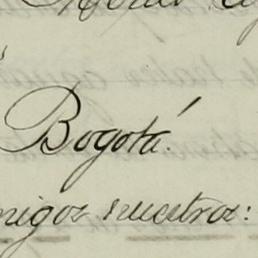 Bogotá.
migos nuestros: